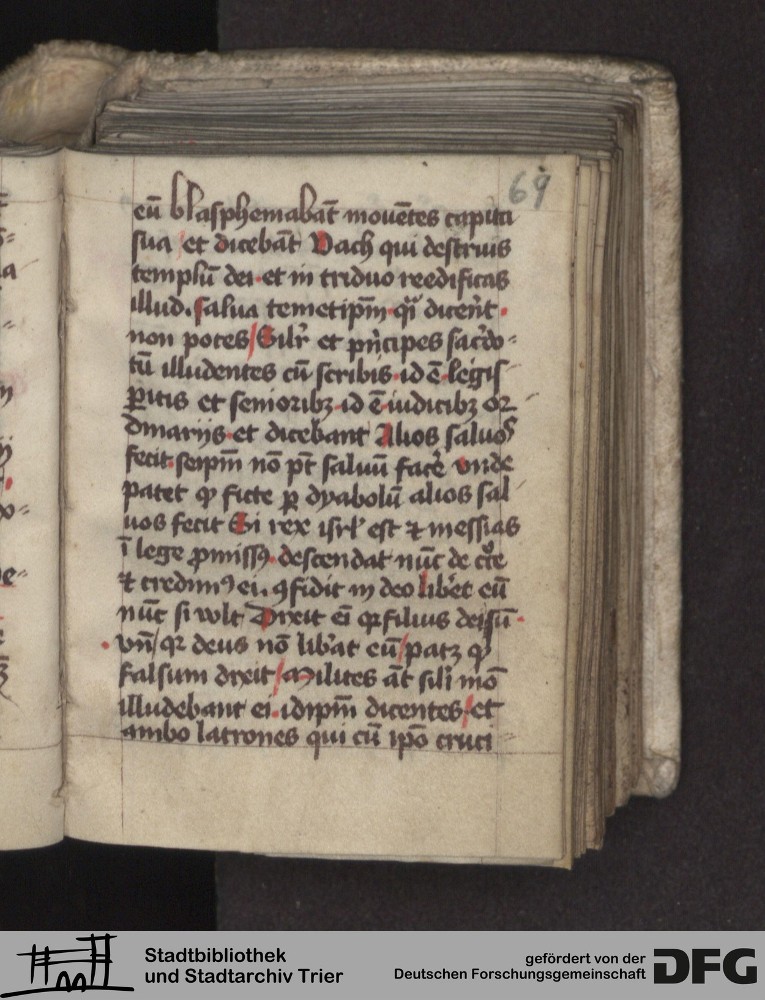 69
eū blasphemabāt mouētes capita
sua et dicebāt Vach qui destruis
templū dei et in triduo reedificas
illud. salua temetipm̄ qī dicēt
non potes Silr̄ et pn̄cipes sacdo
tū illudentes cū scribis id ē legis
ꝑitis et senioribꝫ id ē iudicibꝫ or
dinarijs et dicebant Alios saluos
fecit seipm̄ nō pt̄ saluū face vnde
patet ꝙ ficte ꝑ dyabolū alios sal
uos fecit Si rex isrl̄ est ⁊ messias
ī lege ꝓmissꝰ descendat nūc de cͦce
⁊ credimꝰ ei. ꝯfidit in deo liberet eū
nūc si vult Dixit eī qꝛ filius dei sū
vn̄ qꝛ deus nō libat eū patꝫ ꝙ
falsum dixit Milites āt sili mō
illudebant ei idipm̄ dicentes et
ambo latrones qui cū ipō cruci
Stadtbibliothek
und Stadtarchiv Trier
gefördert von der
Deutschen Forschungsgemeinschaft
DFG